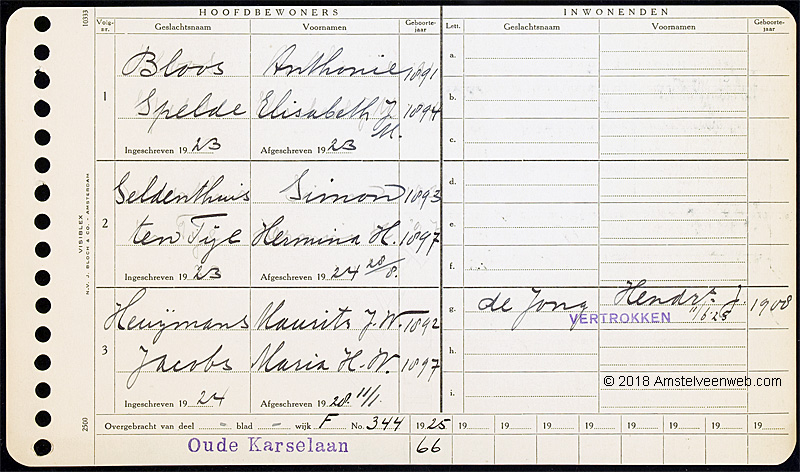 HOOFDBEWONERS INWONENDEN
Volg-nr. Geslachtsnaam Voornamen Geboorte-jaar Lett. Geslachtsnaam Voornamen Geboorte-jaar
10333
1
Bloos Anthonie 1891
Spelde Elisabeth J. M. 1894
Ingeschreven 1923 Afgeschreven 1923
a.
b.
c.
2
Seldenthuis Simon 1893
ten Tije Hermina H. 1897
Ingeschreven 1923 Afgeschreven 1924 28/8.
d.
e.
f.
3
Heuijmans Maurits J.W. 1892
Jacobs Maria H.W. 1897
Ingeschreven 1924 Afgeschreven 1928. 11/1.
g. de Jong Hendrs J. 1908
VERTROKKEN 11/6.25
h.
i.
© 2018 Amstelveenweb.com
VISIBLEX
N.V. J. BLOCH & CO. - AMSTERDAM
2500
Overgebracht van deel - blad - wijk F No. 344 1925 19 19 19 19 19 19 19 19
Oude Karselaan 66